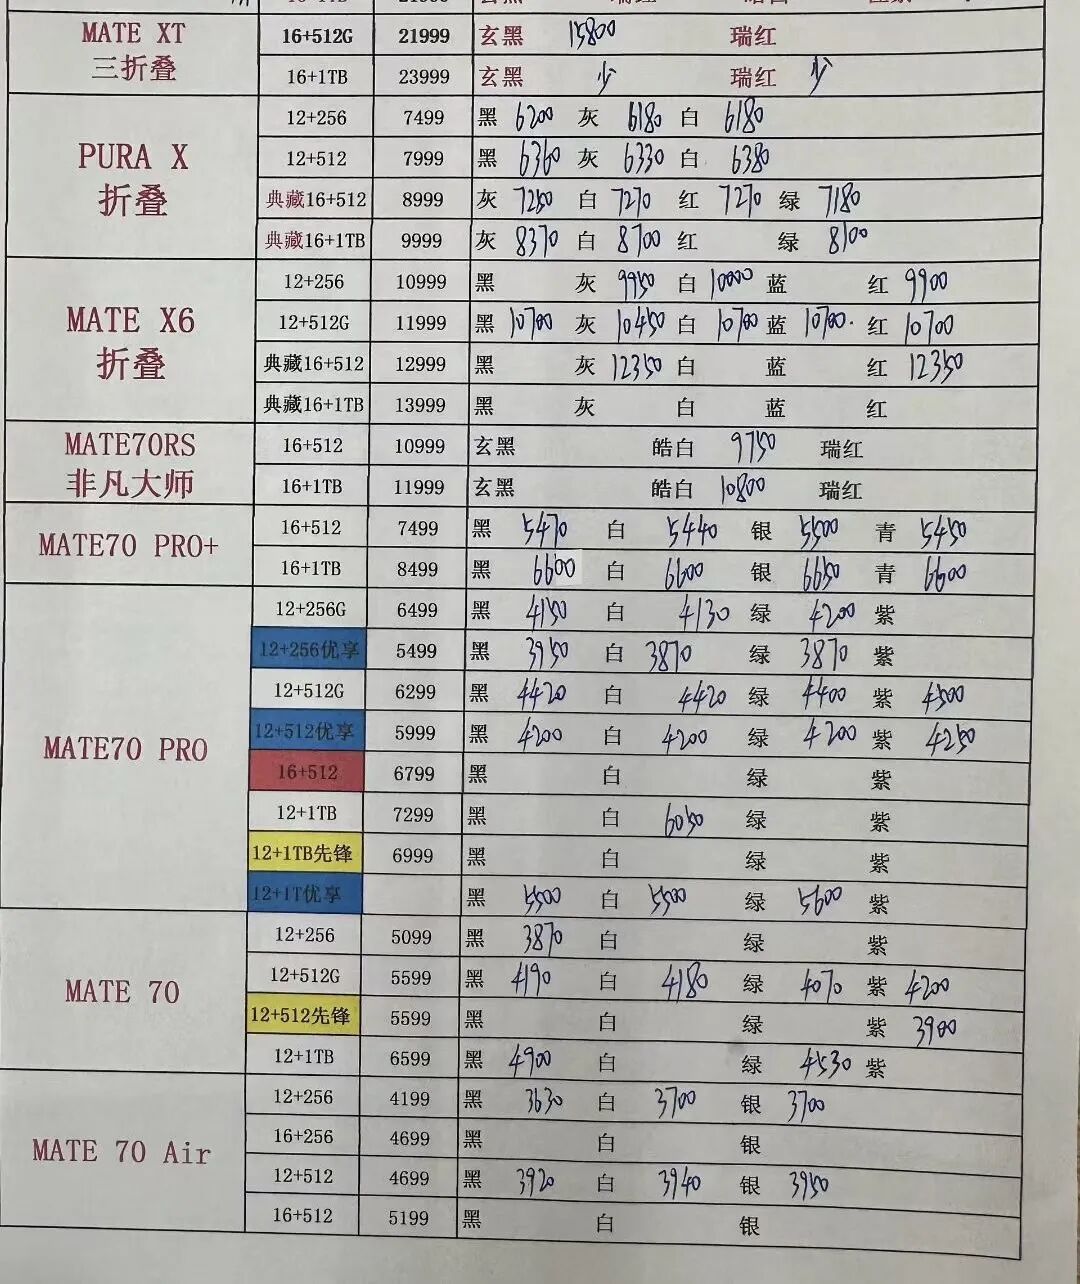 MATE XT
三折叠
16+512G 21999 玄黑 15800 瑞红
16+1TB 23999 玄黑 少 瑞红 少
PURA X
折叠
12+256 7499 黑 6200 灰 6180 白 6180
12+512 7999 黑 6360 灰 6330 白 6380
典藏16+512 8999 灰 7250 白 7270 红 7270 绿 7180
典藏16+1TB 9999 灰 8370 白 8700 红 绿 8100
MATE X6
折叠
12+256 10999 黑 灰 9950 白 10000 蓝 红 9900
12+512G 11999 黑 10700 灰 10450 白 10700 蓝 10700. 红 10700
典藏16+512 12999 黑 灰 12350 白 蓝 红 12350
典藏16+1TB 13999 黑 灰 白 蓝 红
MATE70RS
非凡大师
16+512 10999 玄黑 皓白 9750 瑞红
16+1TB 11999 玄黑 皓白 10800 瑞红
MATE70 PRO+
16+512 7499 黑 5470 白 5440 银 5500 青 5450
16+1TB 8499 黑 6600 白 6600 银 6650 青 6600
MATE70 PRO
12+256G 6499 黑 4150 白 4130 绿 4200 紫
12+256优享 5499 黑 3950 白 3870 绿 3870 紫
12+512G 6299 黑 4420 白 4420 绿 4400 紫 4500
12+512优享 5999 黑 4200 白 4200 绿 4200 紫 4250
16+512 6799 黑 白 绿 紫
12+1TB 7299 黑 白 6050 绿 紫
12+1TB先锋 6999 黑 白 绿 紫
12+1T优享 黑 5500 白 5500 绿 5600 紫
MATE 70
12+256 5099 黑 3870 白 绿 紫
12+512G 5599 黑 4190 白 4180 绿 4070 紫 4200
12+512先锋 5599 黑 白 绿 紫 3900
12+1TB 6599 黑 4900 白 绿 4530 紫
MATE 70 Air
12+256 4199 黑 3630 白 3700 银 3700
16+256 4699 黑 白 银
12+512 4699 黑 3920 白 3940 银 3950
16+512 5199 黑 白 银